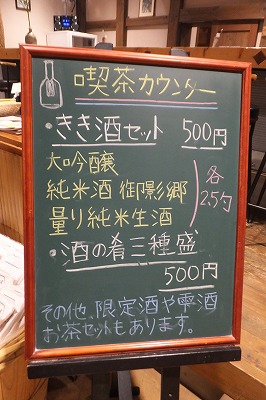 喫茶カウンター
・きき酒セット 500円
大吟醸
純米酒 御影郷
量り純米生酒
各2.5勺
・酒の肴三種盛
500円
その他、限定酒や雫酒
お茶セットもあります。